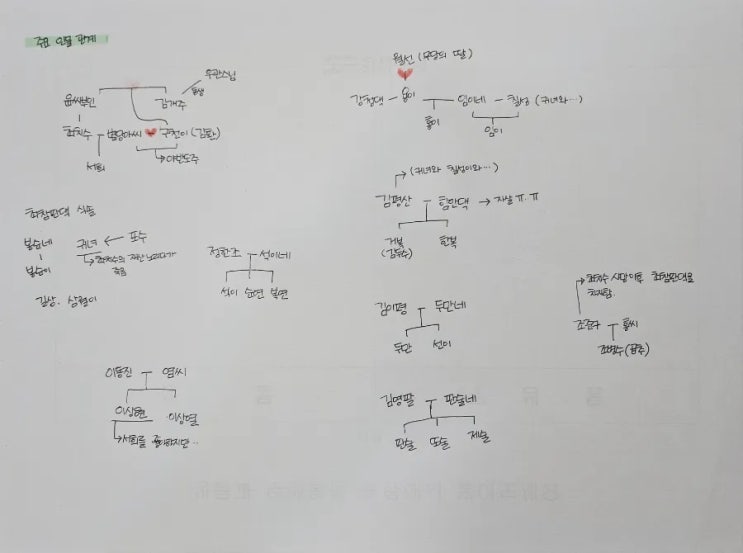 주요 인물 관계
우관스님
동생
윤씨부인
김개주
최치수
별당아씨
구천이 (김환)
야반도주
서희
월선 (무당의 딸)
강청댁 - 용이
임이네 - 칠성 (귀녀와…)
홍이
임이
(귀녀와 칠성이와…)
김평산 - 함안댁 → 자살 ㅠ.ㅠ
거복
(김두수)
한복
최참판댁 식솔
봉순네
봉순이
귀녀 ← 포수
최치수의 재산 노리다가
죽음
길상, 삼월이
정한조 - 석이네
석이 순연 복연
김이평 - 두만네
두만 선이
최치수 사망이후 최참판댁을
조준구 홍씨
조병수 (꼽추)
이동진 염씨
이상현 이상열
서희를 좋아하지만…
김영팔 판술네
판술 또술 제술